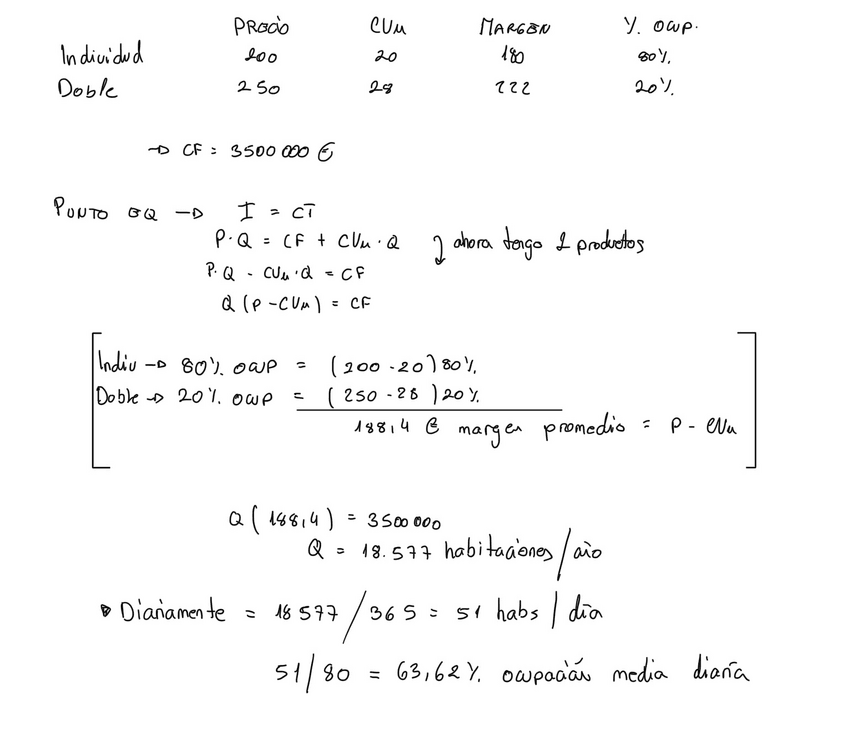 PRECIO CVu MARGEN % OCUP.
Individual 200 20 180 80%
Doble 250 28 222 20%
→ CF = 3500 000 €
PUNTO EQ → I = CT
P·Q = CF + CVu · Q ahora tengo 2 productos
P·Q - CVu·Q = CF
Q (P - CVu) = CF
Indiv → 80% OCUP = (200 - 20) 80%
Doble → 20% OCUP = (250 - 28) 20%
188,4 € margen promedio = P - CVu
Q (188,4) = 3500 000
Q = 18.577 habitaciones / año
Diariamente = 18577 / 365 = 51 habs / día
51/80 = 63,62% ocupación media diaria